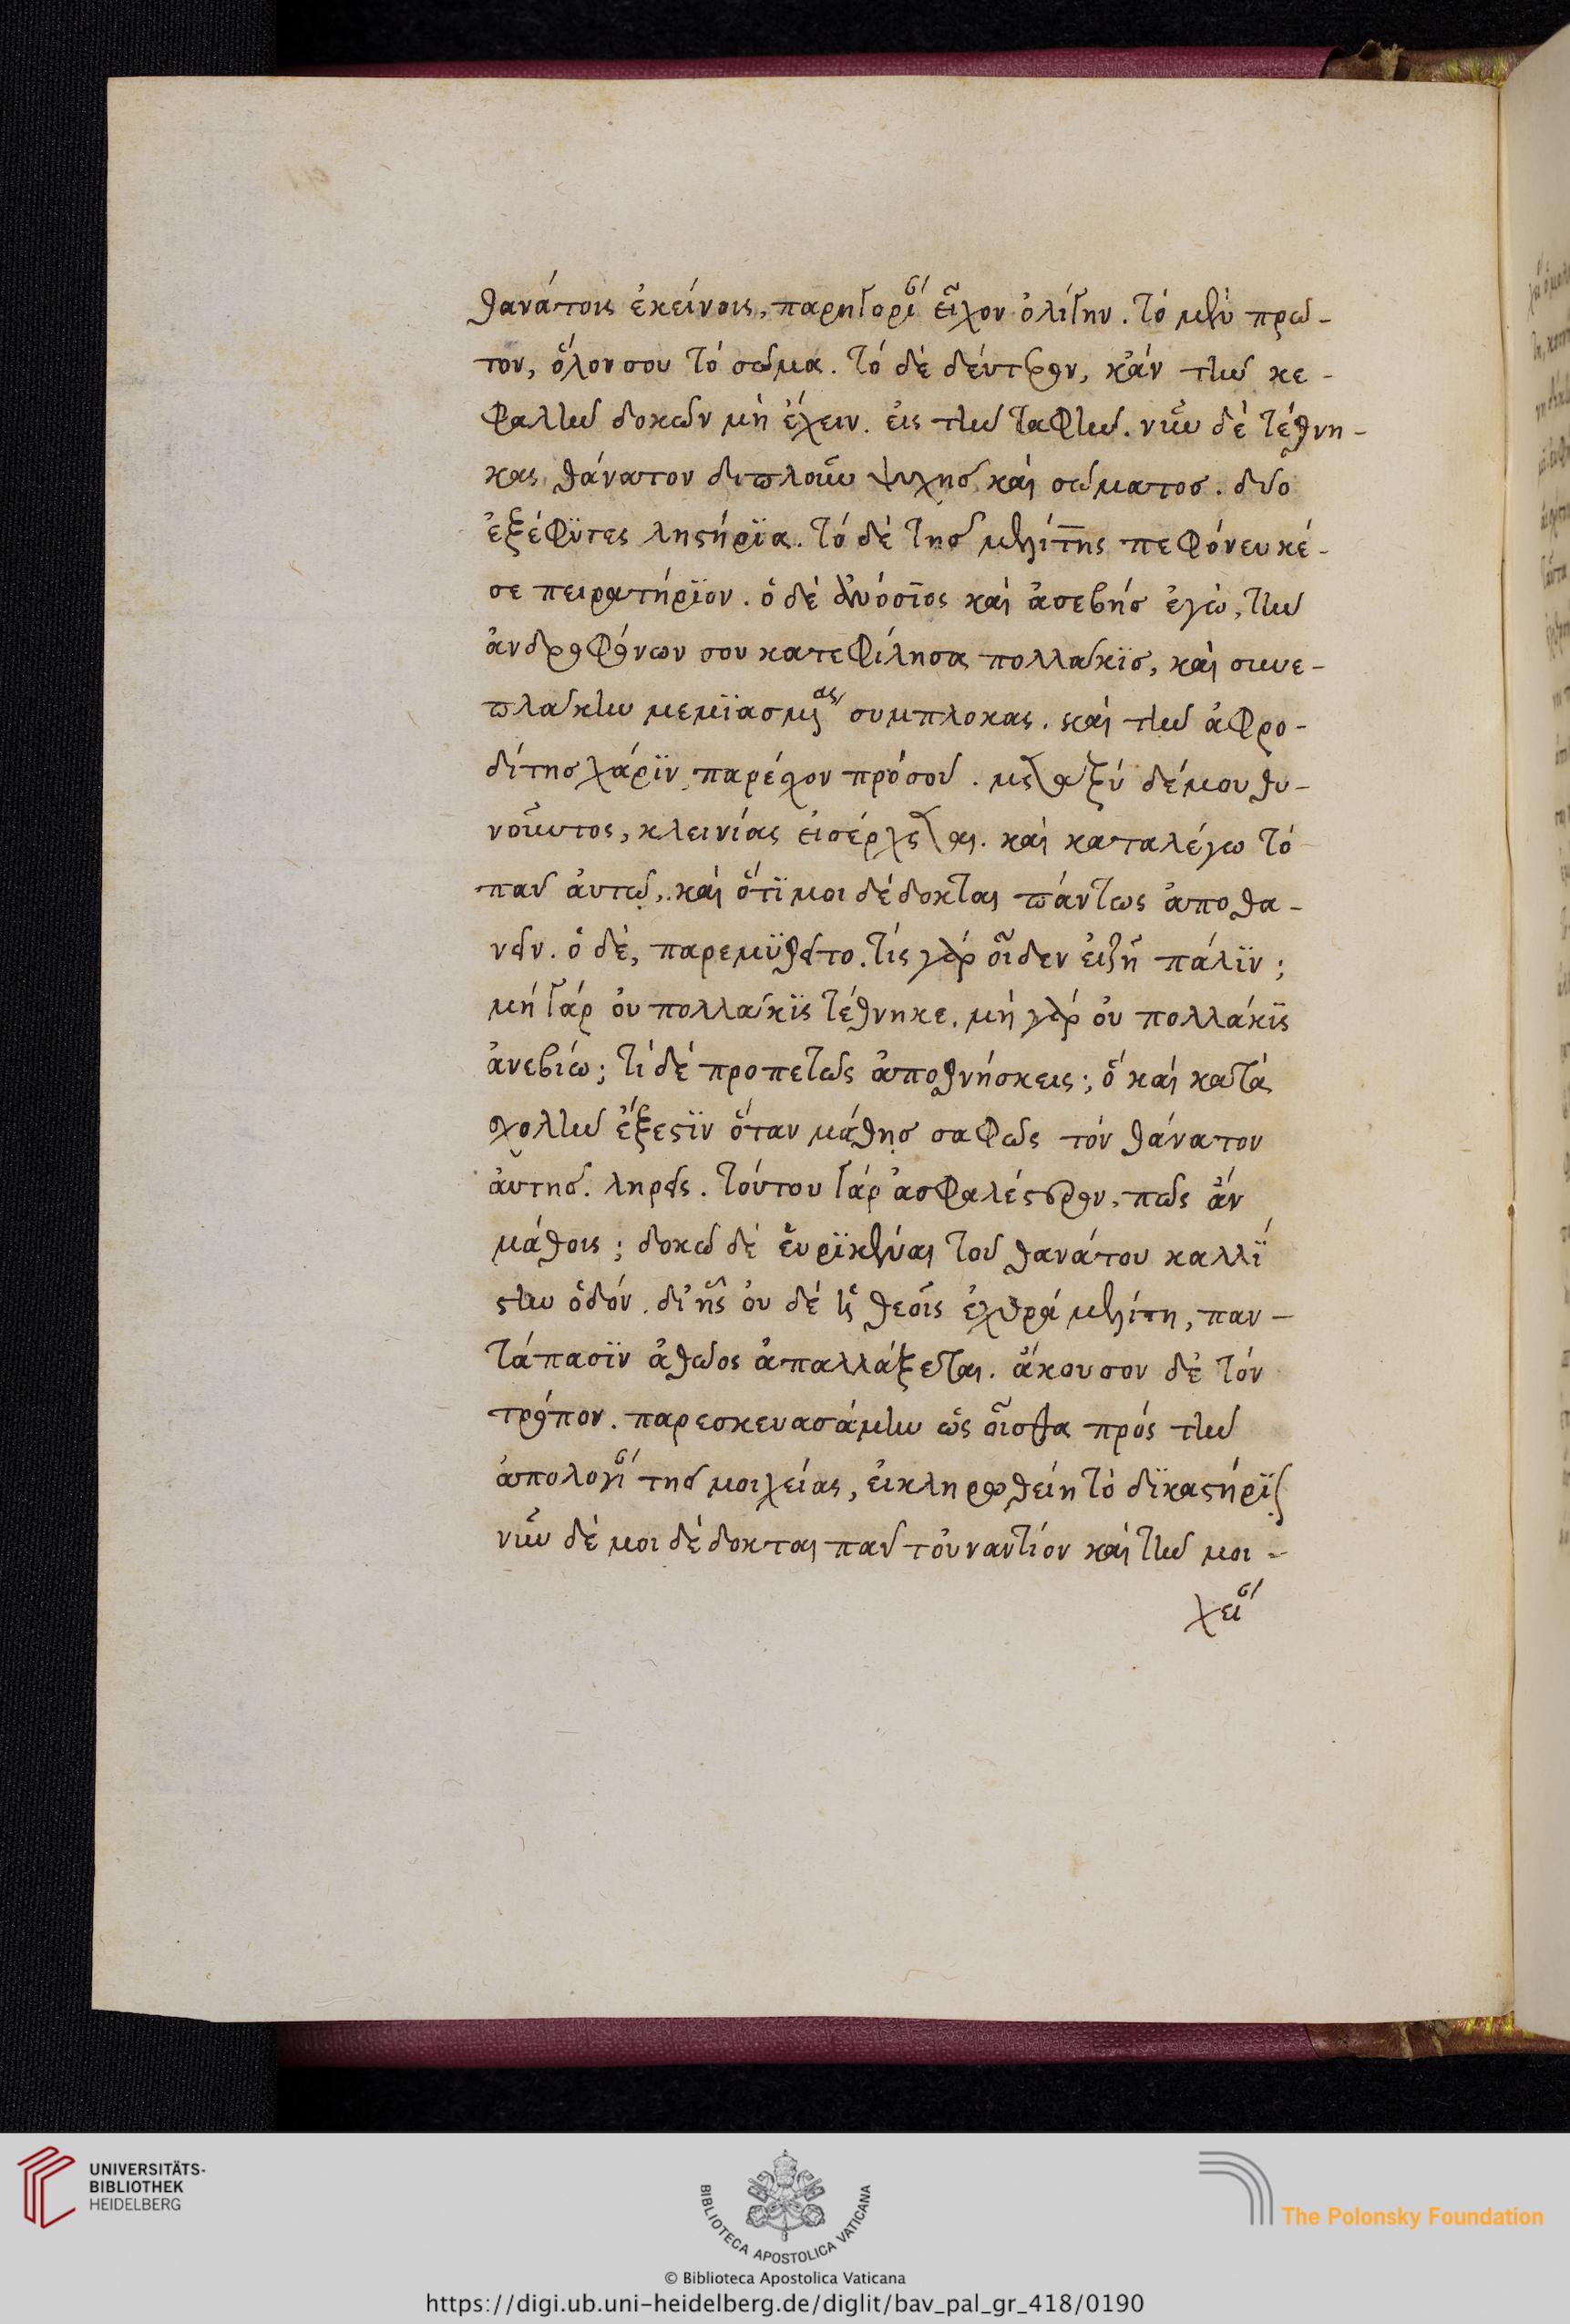 θανάτοις ἐκείνοις, παρηγορίαν εἶχον ὀλίγην. τὸ μὲν πρῶ-
τον, ὅλον σου τὸ σῶμα. τὸ δὲ δεύτερον, κἂν τὴν κε-
φαλὴν δοκῶν μὴ ἔχειν. εἰς τὴν ταφὴν. νῦν δὲ τέθνη-
κας θάνατον διπλοῦν ψυχῆς καὶ σώματος. δύο
ἐξέφϋγες ληστήρϊα. τὸ δὲ τῆς μελίττης πεφόνευκέ-
σε πειρατήρϊον. ὁ δὲ ἀνόσϊος καὶ ἀσεβὴς ἐγὼ, τὴν
ἀνδροφόνων σου κατεφίλησα πολλάκϊς, καὶ συνε-
πλάκην μεμϊασμένας συμπλοκας. καὶ τὴν ἀφρο-
δίτης χάρϊν παρέσχον πρὸ σοῦ. μεταξὺ δέ μου θρη-
νοῦντος, κλεινίας εἰσέρχεται. καὶ καταλέγω τὸ
πᾶν αὐτῷ, καὶ ὅτϊ μοι δέδοκται πάντως ἀποθα-
νεῖν. ὁ δὲ, παρεμϋθεῖτο. τίς γὰρ οἶδεν εἰ ζῇ πάλϊν;
μὴ γὰρ οὐ πολλάκϊς τέθνηκε. μὴ γὰρ οὐ πολλάκϊς
ἀνεβίω; τί δὲ προπετῶς ἀποθνήσκεις; ὃ καὶ κατὰ
σχολὴν ἔξεστϊν ὅταν μάθῃς σαφῶς τὸν θάνατον
αὐτῆς. ληρεῖς. τούτου γὰρ ἀσφαλέστερον, πῶς ἂν
μάθοις; δοκῶ δὲ εὑρϊκέναι τοῦ θανάτου καλλί
στην ὁδόν. δι᾽ ἧς οὐ δὲ ἡ θεοῖς ἐχθρὰ μελίτη, παν-
τάπασϊν ἀθῶος ἀπαλλάξεται. ἄκουσον δὲ τὸν
τρόπον. παρεσκευασάμην ὡς οἶσθα πρὸς τὴν
ἀπολογίαν τῆς μοιχείας, εἰ κληρωθείη τὸ δϊκαστήρϊον
νῦν δέ μοι δέδοκται πᾶν τοὐναντίον καὶ τὴν μοι-
χείαν
UNIVERSITÄTS-
BIBLIOTHEK
HEIDELBERG
BIBLIOTECA APOSTOLICA VATICANA
The Polonsky Foundation
© Biblioteca Apostolica Vaticana
https://digi.ub.uni-heidelberg.de/diglit/bav_pal_gr_418/0190